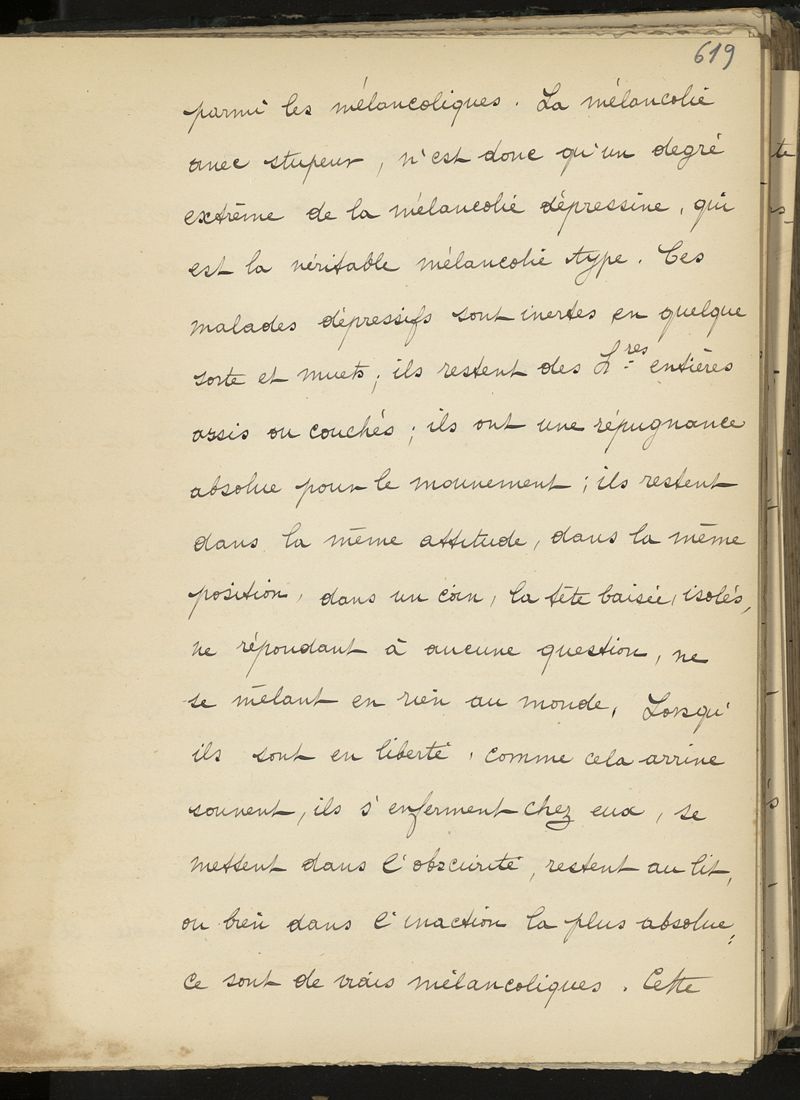 619
parmi les mélancoliques. La mélancolie
avec stupeur, n'est donc qu'un degré
extrême de la mélancolie dépressive, qui
est la véritable mélancolie type. Ces
malades dépressifs sont inertes en quelque
sorte et muets; ils restent des hres entières
assis ou couchés; ils ont une répugnance
absolue pour le mouvement; ils restent
dans la même attitude, dans la même
position, dans un coin, la tête baissée, isolés,
ne répondant à aucune question, ne
se mêlant en rien au monde. Lorsqu'
ils sont en liberté, comme cela arrive
souvent, ils s'enferment chez eux, se
mettent dans l'obscurité, restent au lit,
ou bien dans l'inaction la plus absolue;
ce sont de vrais mélancoliques. Cette